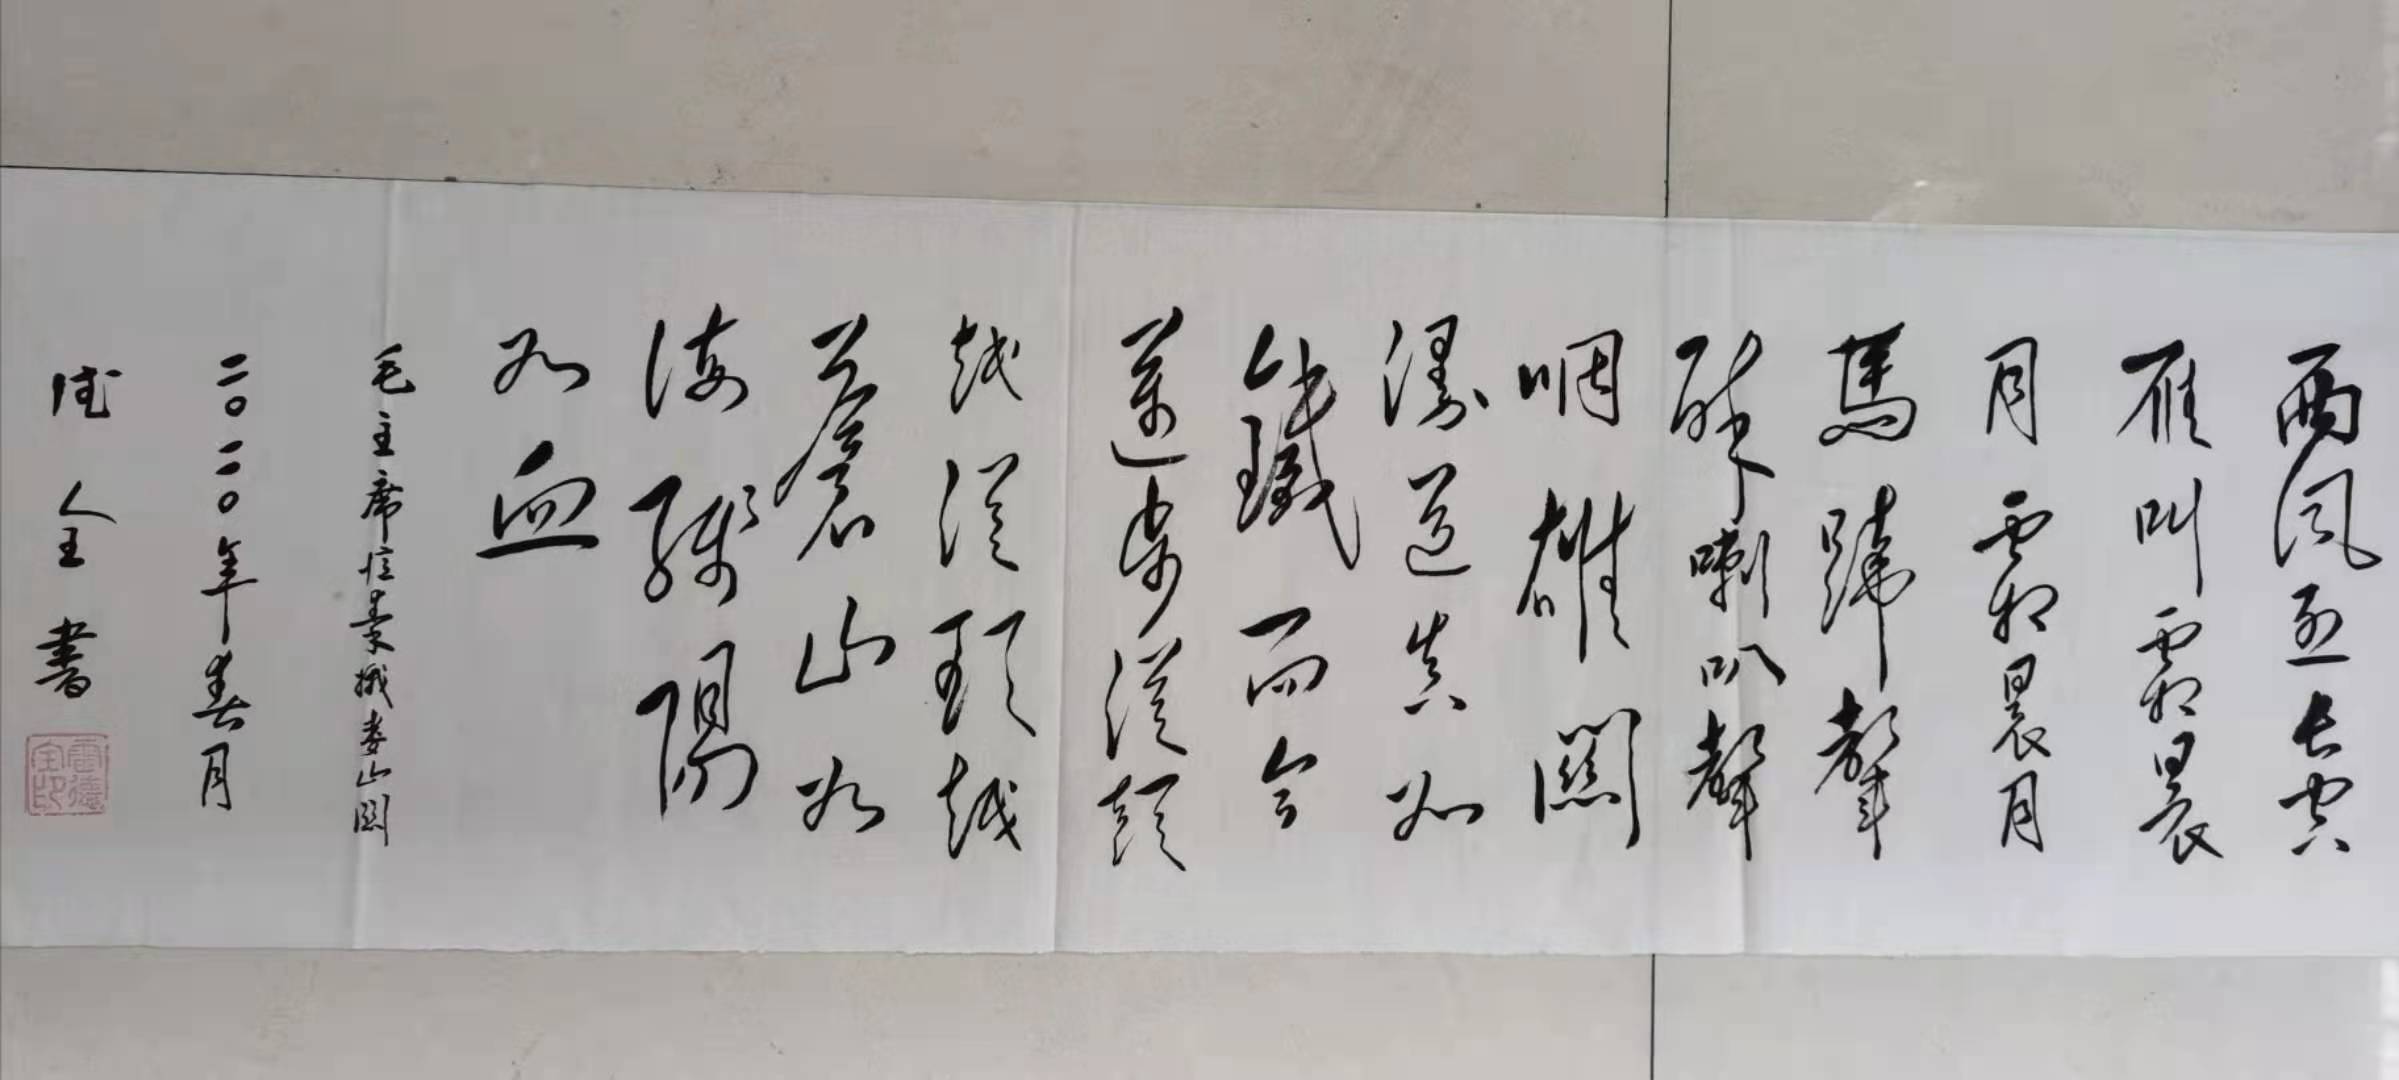 西風烈長空
雁叫霜晨
月霜晨月
馬蹄聲
碎喇叭聲
咽雄關
漫道真如
鐵而今
邁步從頭
越從頭越
蒼山如
海殘陽
如血
毛主席憶秦娥婁山關
二〇二〇年春月
德全書
雷德全印